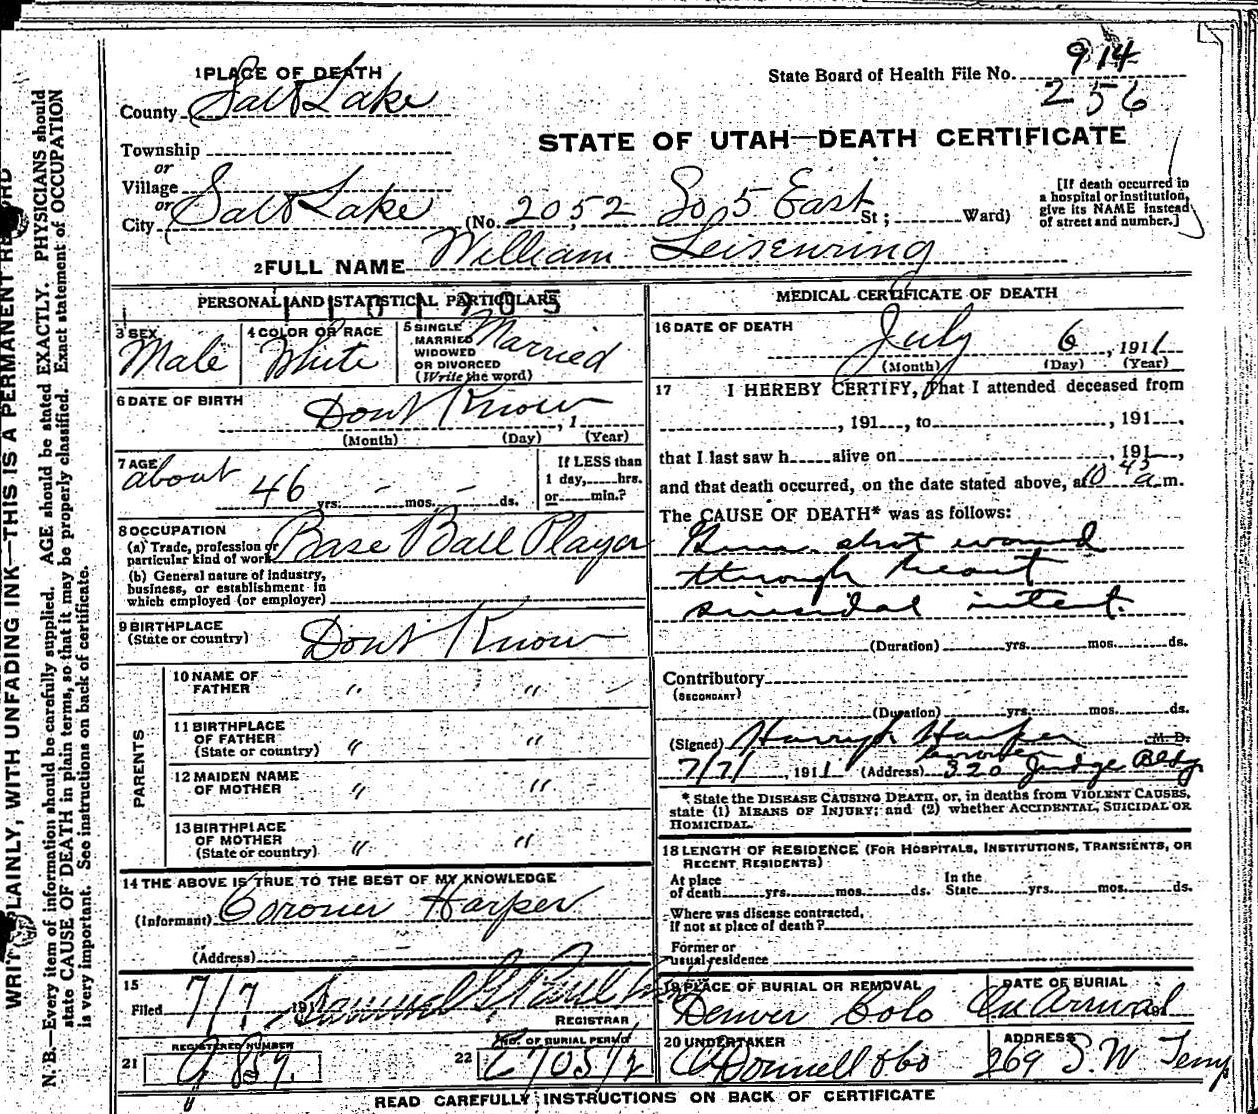 1 PLACE OF DEATH
County Salt Lake
Township
or
Village
or
City Salt Lake (No. 2052 So 5 East St; Ward)
2 FULL NAME William Leisenring
State Board of Health File No. 914
256
STATE OF UTAH—DEATH CERTIFICATE
[If death occurred in
a hospital or institution,
give its NAME instead
of street and number.]
PERSONAL AND STATISTICAL PARTICULARS
1101905
3 SEX
Male
4 COLOR OR RACE
White
5 SINGLE
MARRIED
WIDOWED
OR DIVORCED
(Write the word)
Married
6 DATE OF BIRTH
Dont Know , 1
(Month) (Day) (Year)
7 AGE
about 46 yrs. - mos. - ds.
If LESS than
1 day, hrs.
or min.?
8 OCCUPATION
(a) Trade, profession or
particular kind of work Base Ball Player
(b) General nature of industry,
business, or establishment in
which employed (or employer)
9 BIRTHPLACE
(State or country) Dont Know
PARENTS
10 NAME OF
FATHER " "
11 BIRTHPLACE
OF FATHER
(State or country) " "
12 MAIDEN NAME
OF MOTHER " "
13 BIRTHPLACE
OF MOTHER
(State or country) " "
14 THE ABOVE IS TRUE TO THE BEST OF MY KNOWLEDGE
(Informant) Coroner Harper
(Address)
15
Filed 7/7, 191 Samuel G. Paul
REGISTRAR
21 REGISTERED NUMBER
9859
22 NO. OF BURIAL PERMIT
MEDICAL CERTIFICATE OF DEATH
16 DATE OF DEATH
July 6, 1911
(Month) (Day) (Year)
17 I HEREBY CERTIFY, That I attended deceased from
, 191 , to , 191 ,
that I last saw h alive on , 191 ,
and that death occurred, on the date stated above, at 10 45 a m.
The CAUSE OF DEATH* was as follows:
Gun shot wound
through heart
suicidal intent.
(Duration) yrs. mos. ds.
Contributory
(SECONDARY)
(Duration) yrs. mos. ds.
(Signed) Harry Harper M. D.
Coroner
7/7/, 1911 (Address) 320 Judge Bldg
* State the DISEASE CAUSING DEATH, or, in deaths from VIOLENT CAUSES,
state (1) MEANS OF INJURY; and (2) whether ACCIDENTAL, SUICIDAL OR
HOMICIDAL.
18 LENGTH OF RESIDENCE (FOR HOSPITALS, INSTITUTIONS, TRANSIENTS, OR
RECENT RESIDENTS)
At place
of death yrs. mos. ds. In the
State yrs. mos. ds.
Where was disease contracted,
if not at place of death?
Former or
usual residence
19 PLACE OF BURIAL OR REMOVAL
Denver Colo
DATE OF BURIAL
On Arrival 191
20 UNDERTAKER
O'Donnell & Co
ADDRESS
269 S. W. Temp
READ CAREFULLY INSTRUCTIONS ON BACK OF CERTIFICATE
WRITE PLAINLY, WITH UNFADING INK—THIS IS A PERMANENT RECORD
N. B.—Every item of information should be carefully supplied. AGE should be stated EXACTLY. PHYSICIANS should
state CAUSE OF DEATH in plain terms, so that it may be properly classified. Exact statement of OCCUPATION
is very important. See instructions on back of certificate.